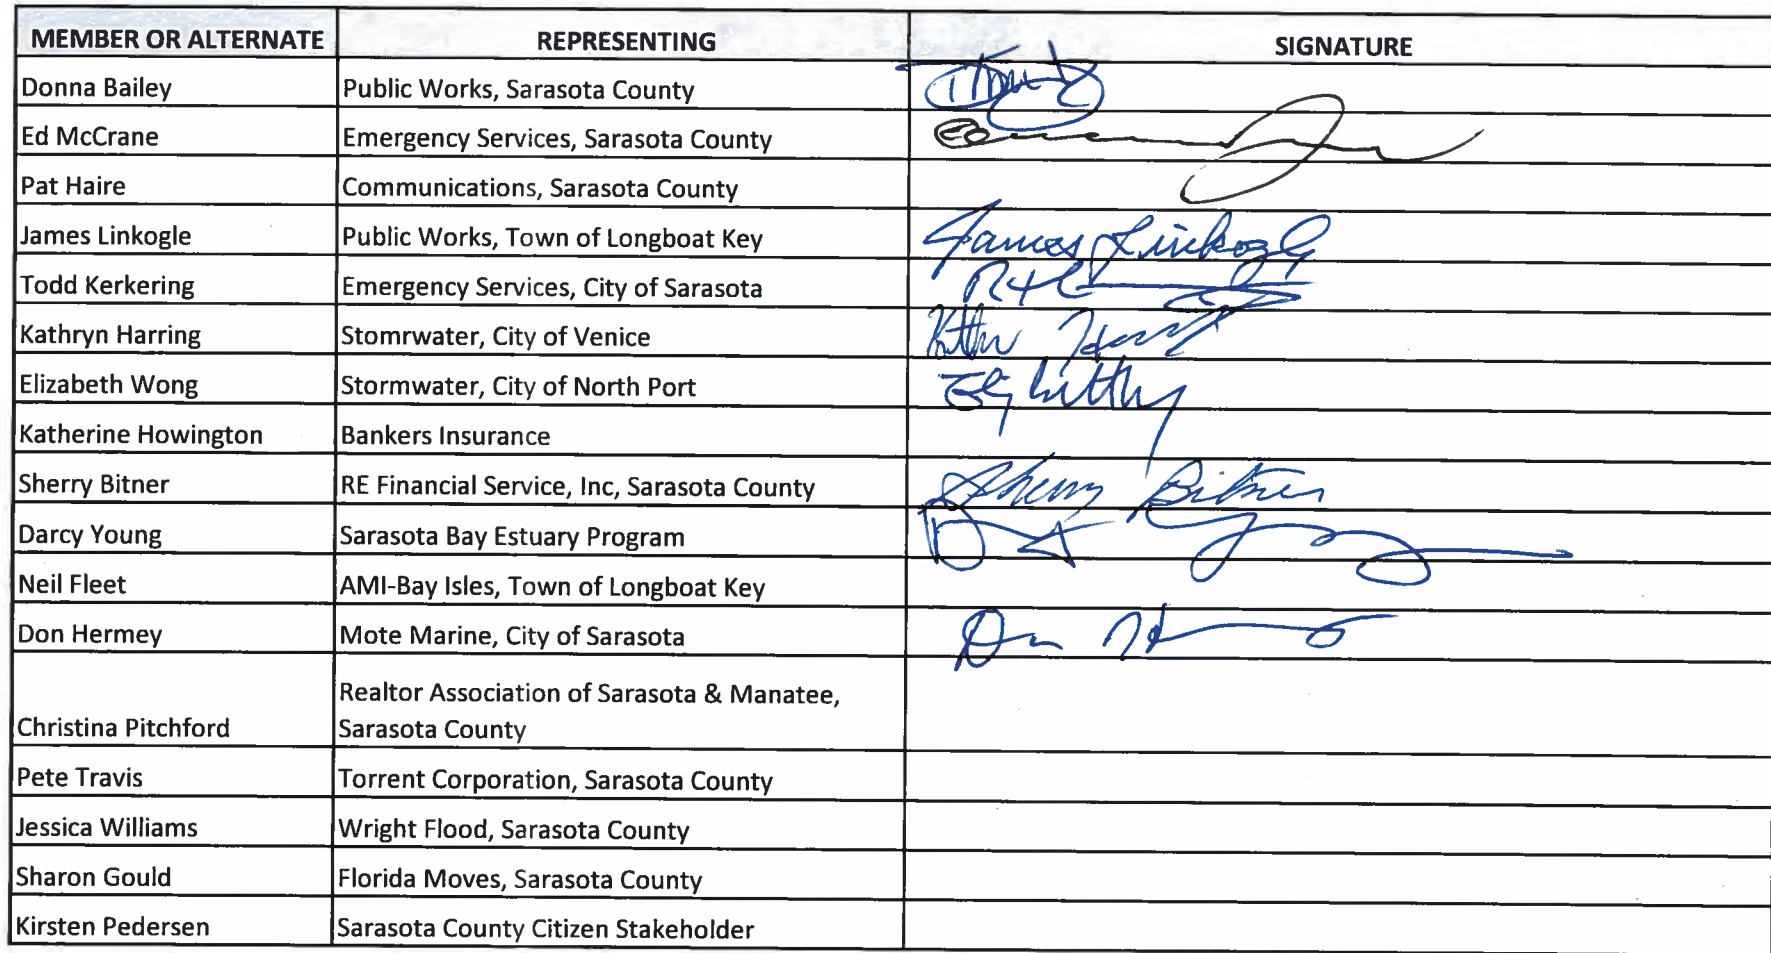 MEMBER OR ALTERNATE REPRESENTING SIGNATURE
Donna Bailey Public Works, Sarasota County
Ed McCrane Emergency Services, Sarasota County
Pat Haire Communications, Sarasota County
James Linkogle Public Works, Town of Longboat Key James Linkogle
Todd Kerkering Emergency Services, City of Sarasota
Kathryn Harring Stomrwater, City of Venice
Elizabeth Wong Stormwater, City of North Port
Katherine Howington Bankers Insurance
Sherry Bitner RE Financial Service, Inc, Sarasota County Sherry Bitner
Darcy Young Sarasota Bay Estuary Program
Neil Fleet AMI-Bay Isles, Town of Longboat Key
Don Hermey Mote Marine, City of Sarasota
Realtor Association of Sarasota & Manatee,
Christina Pitchford Sarasota County
Pete Travis Torrent Corporation, Sarasota County
Jessica Williams Wright Flood, Sarasota County
Sharon Gould Florida Moves, Sarasota County
Kirsten Pedersen Sarasota County Citizen Stakeholder